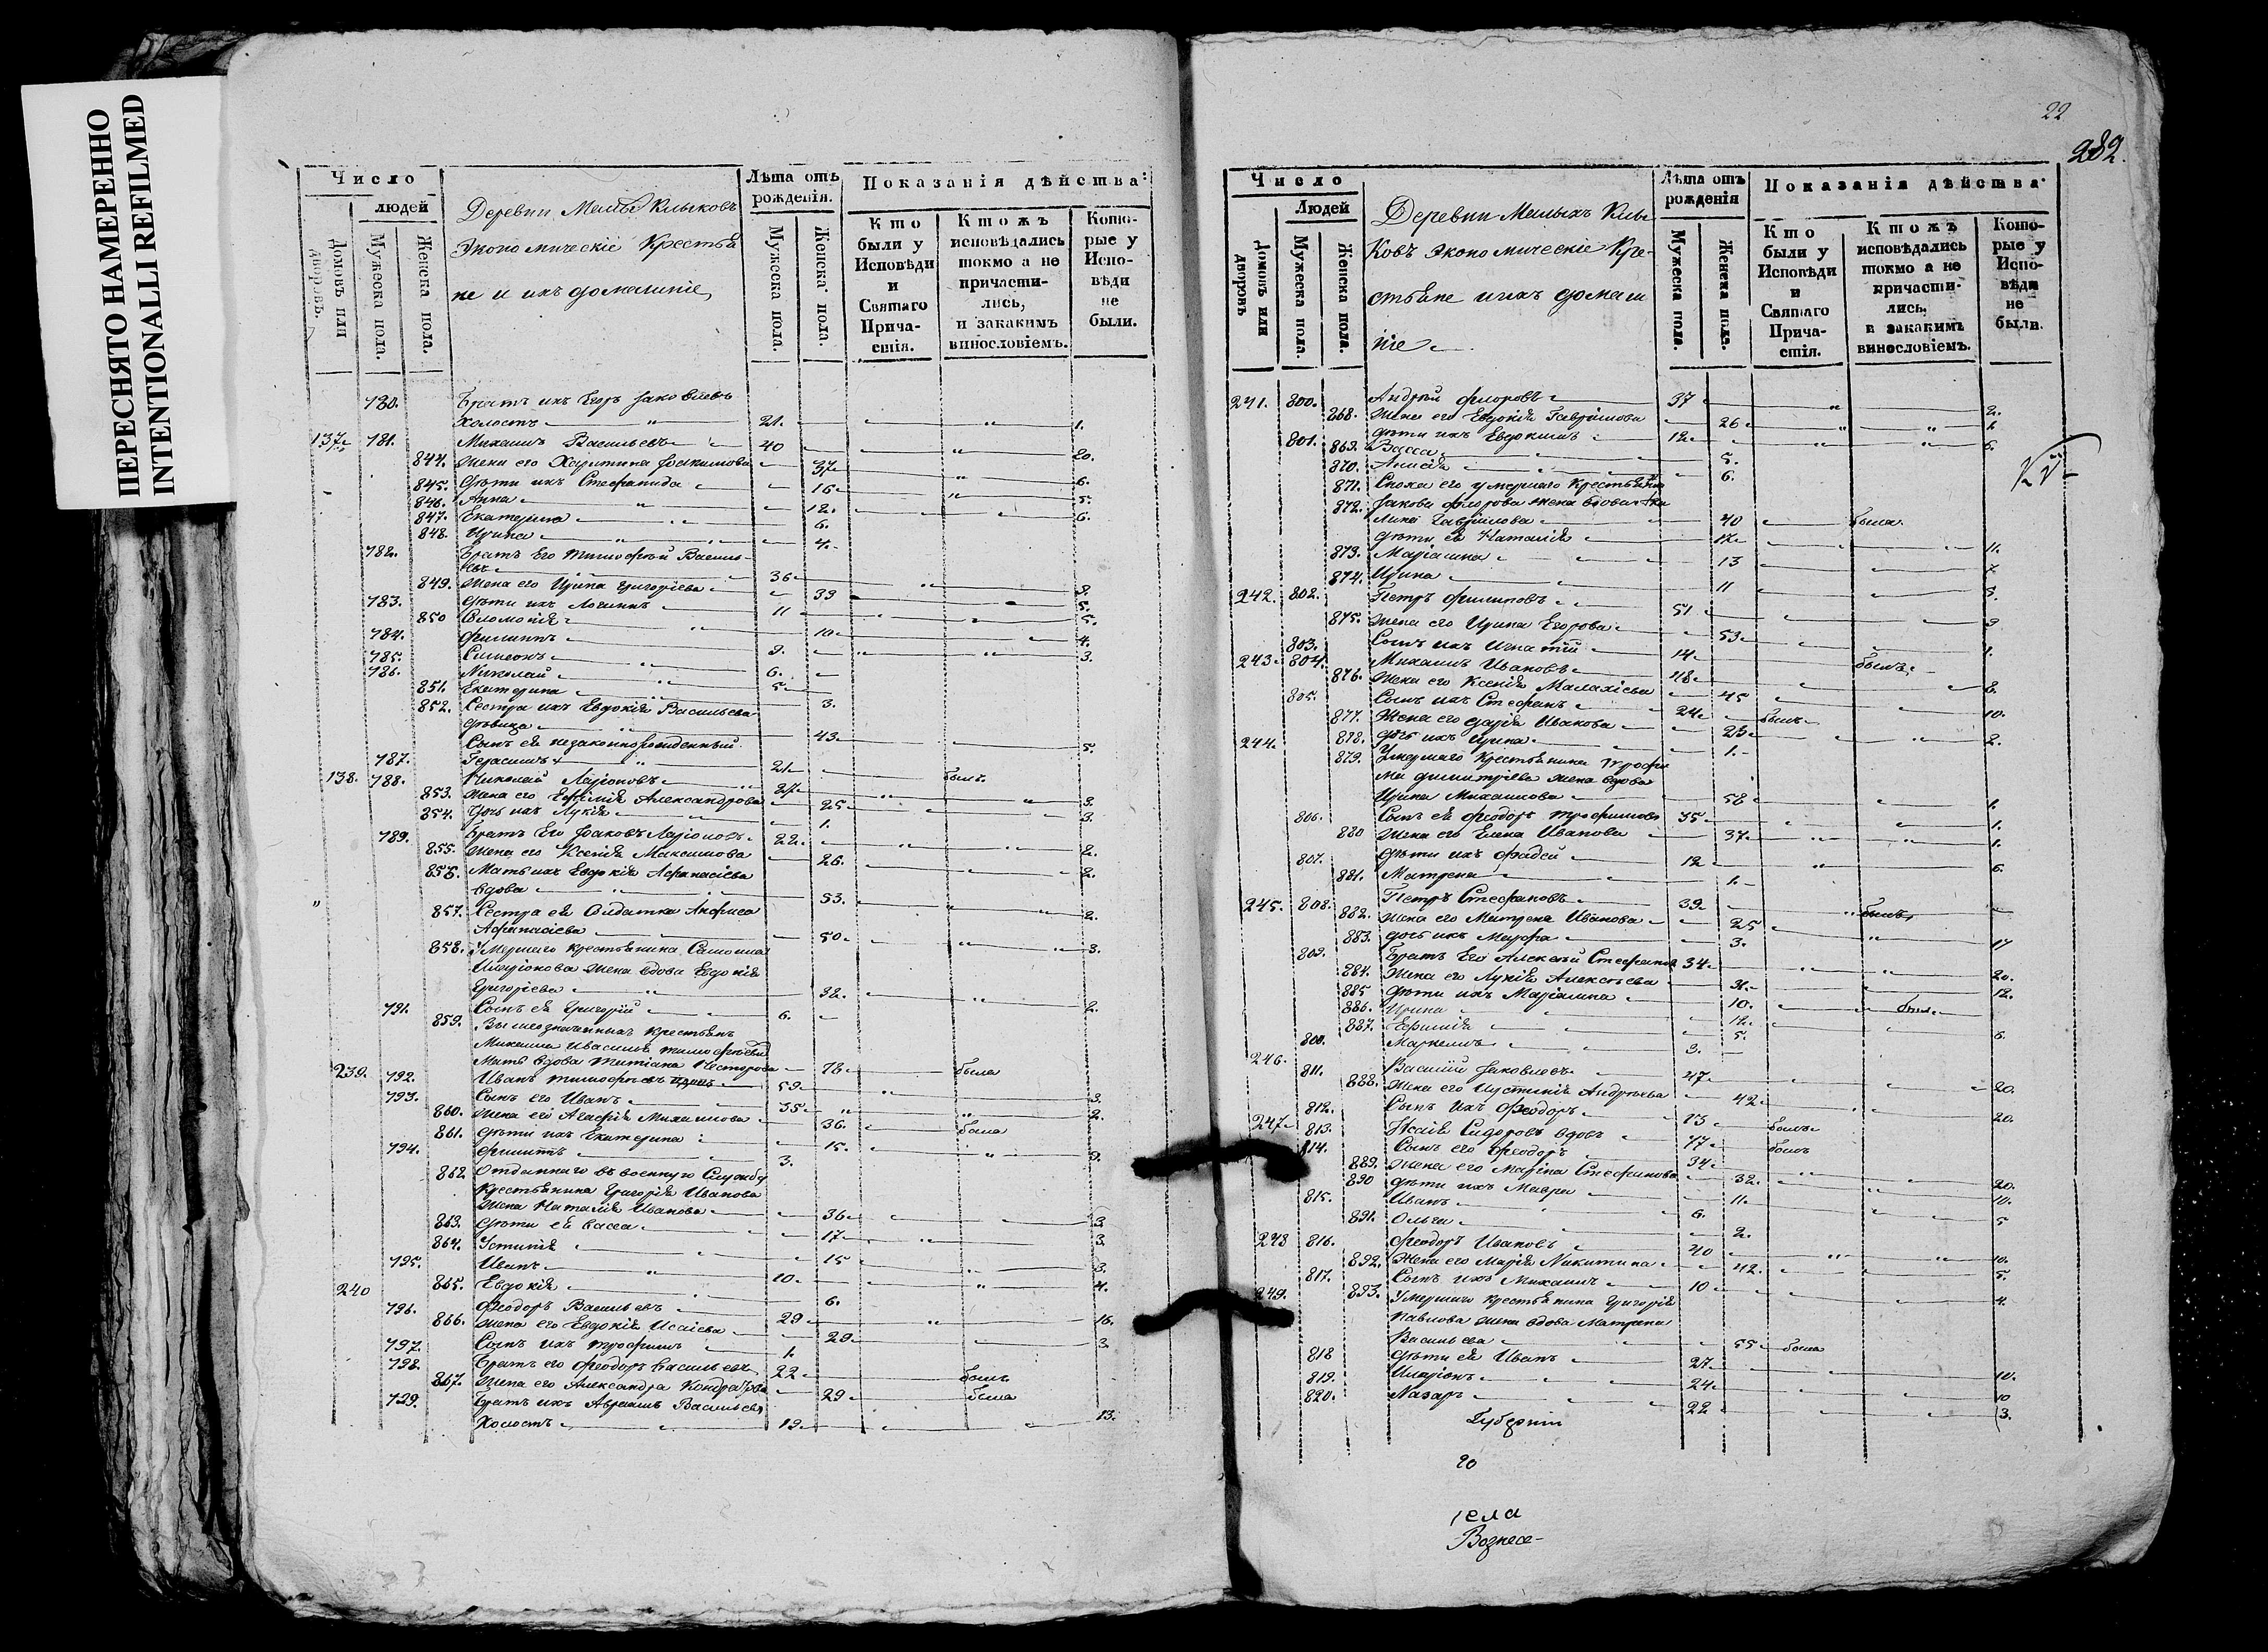 ПЕРЕСНЯТО НАМЕРЕННО
INTENTIONALLI REFILMED
Число
людей
Домовъ или дворовъ.
Мужеска пола.
Женска пола.
Деревни Малы Клыковъ
Экономическіе Крестья
не и ихъ домашніе
Лѣта отъ рожденія.
Мужеска пола.
Женска пола.
Показанія дѣйства:
Кто были у Исповѣди и Святаго Причастія.
Ктожъ исповѣдались токмо а не причастились, и закакимъ винословіемъ.
Которые у Исповѣди не были.
780. Братъ ихъ Егоръ Іаковлевъ
холостъ 21. 1.
137. 781. Михаилъ Васильевъ 40 20.
844. Жена его Харитина 37 6.
845. Дѣти ихъ Стефанида 16 5.
846. Анна 12. 6.
847. Екатерина 6.
848. Ирина 4.
782. Братъ Его Тимофей Василь
евъ 36 9.
849. Жена его Ирина Григорьева 39 5.
783. Дѣти ихъ Логинъ 11 5.
850 Соломонія 10 4.
784. Филиппъ 9. 3.
785. Симеонъ 6.
786. Николай 5
851. Екатерина 3.
852. Сестра ихъ Евдокія Васильева
дѣвица 43 5.
Сынъ ея незаконнорожденный
787. Герасимъ 21 былъ
138. 788. Николай Ларіоновъ 27 3.
853. Жена его Евфимія Александрова 25 3.
854. Дочь ихъ Лукія 1.
789. Братъ Его Іаковъ Ларіоновъ 22. 2.
855. Жена его Ксенія Максимова 26. 2.
856. Мать ихъ Евдокія Афанасіева
вдова 53. 2.
857. Сестра ея Солдатка Анфиса
Афанасіева 50 3.
858. Умершаго крестьянина
Иларіонова жена вдова Евдокія
Григоріева 32. 2.
791. Сынъ ея Григорій 6.
859. Вышеозначенныхъ крестьянъ
Михаила Тимофеева
Мать вдова Татіана Нестерова 78 была
239. 792. Иванъ Тимофеевъ 59 3.
793. Сынъ его Иванъ 35 2.
860. Жена его Агафія Михаилова 36. была
861. Дѣти ихъ Екатерина 15. 9.
794. Филиппъ 3.
862. Отданнаго въ военную Службу
Крестьянина Григорія Иванова
Жена Наталія Иванова 36 3
863. Дѣти ея Васса 17 3.
864. Устинія 15 3.
795. Иванъ 10 4.
865. Евдокія 6.
240 796. Феодоръ Васильевъ 29 16.
866. Жена его Евдокія Исаіева 29 3.
797. Сынъ ихъ Трофимъ 1.
798. Братъ его Феодоръ Васильевъ 22 былъ
867. Жена его Александра Кондратова 29 была
799. Братъ ихъ Авраамъ Васильевъ
холостъ 19 13.
22
282.
Число
Людей
Домовъ или дворовъ
Мужеска пола.
Женска пола.
Деревни Малыхъ Клы
ковъ Экономическіе Кре-
стьяне и ихъ домаш
ніе
Лѣта отъ рожденія
Мужеска пола.
Женска пола.
Показанія дѣйства
Кто были у Исповѣди и Святаго Причастія.
Ктожъ исповѣдались токмо а не причастились, и закакимъ винословіемъ.
Которые у Исповѣди не были.
241. 800. Андрей Флоровъ 37 2.
868. Жена его Евдокія Гавріилова 26 1.
801. Дѣти ихъ Евдокимъ 12 6.
869. Васса 5.
870. Анисія 6.
871. Сноха его умершаго крестьянина
872. Іакова Флорова жена вдова
Гавріилова 40 была
Дѣти ея Наталія 11.
873. Маріамна 13 7
874. Ирина 11 5.
242. 802. Петръ Филиповъ 51
875. Жена его Ирина Егорова 53 9
803. Сынъ ихъ Игнатій 14 1.
243 804. Михаилъ Ивановъ 48 былъ
876. Жена его Ксенія Малахіева 45 8.
805. Сынъ ихъ Стефанъ 24 былъ 10.
877. Жена его Дарія Иванова 25 2.
244. 878. Дочь ихъ Ирина 1.
879. Умершаго Крестьянина Трофи
ма Димитріева жена вдова
Ирина Михаилова 58 1.
806. Сынъ ея Феодоръ Трофимовъ 35 1.
880 Жена его Елена Иванова 37 1.
807. Дѣти ихъ Фадей 12 6.
881. Матрена 1.
245. 808. Петръ Стефановъ 39 былъ
882. Жена его Матрена Иванова 25
883. Дочь ихъ Марфа 3. 17
809. Братъ Его Алексѣй Стефановъ 34 20.
884. Жена его Лукія Алексѣева 31 12.
885 Дѣти ихъ Маріамна 10.
886. Ирина 12
887. Евфимія 5. 6.
Маркеллъ 3.
246. 811. Василій Іаковлевъ 47 20.
888. Жена его Иустинія Андреева 42 20.
812. Сынъ ихъ Феодоръ 13 былъ
247 813. Исаія Сидоровъ вдовъ 77 былъ
814. Сынъ его Феодоръ 34
889. Жена его Марина Стефанова 32. 20.
890 Дѣти ихъ Мавра 11. 10.
815. Иванъ 6. 5
891. Ольга 2.
248 816. Феодоръ Ивановъ 40 10.
892. Жена его Марія Никитина 42. 5.
817. Сынъ ихъ Михаилъ 10 4.
249. 893. Умершаго крестьянина Григорія
Павлова жена вдова Матрона
Васильева 55 была
818 Дѣти ея Иванъ 27 10.
819. Иларіонъ 24 10
820. Назаръ 22 3.
Губерніи
20
села
Вознесе-